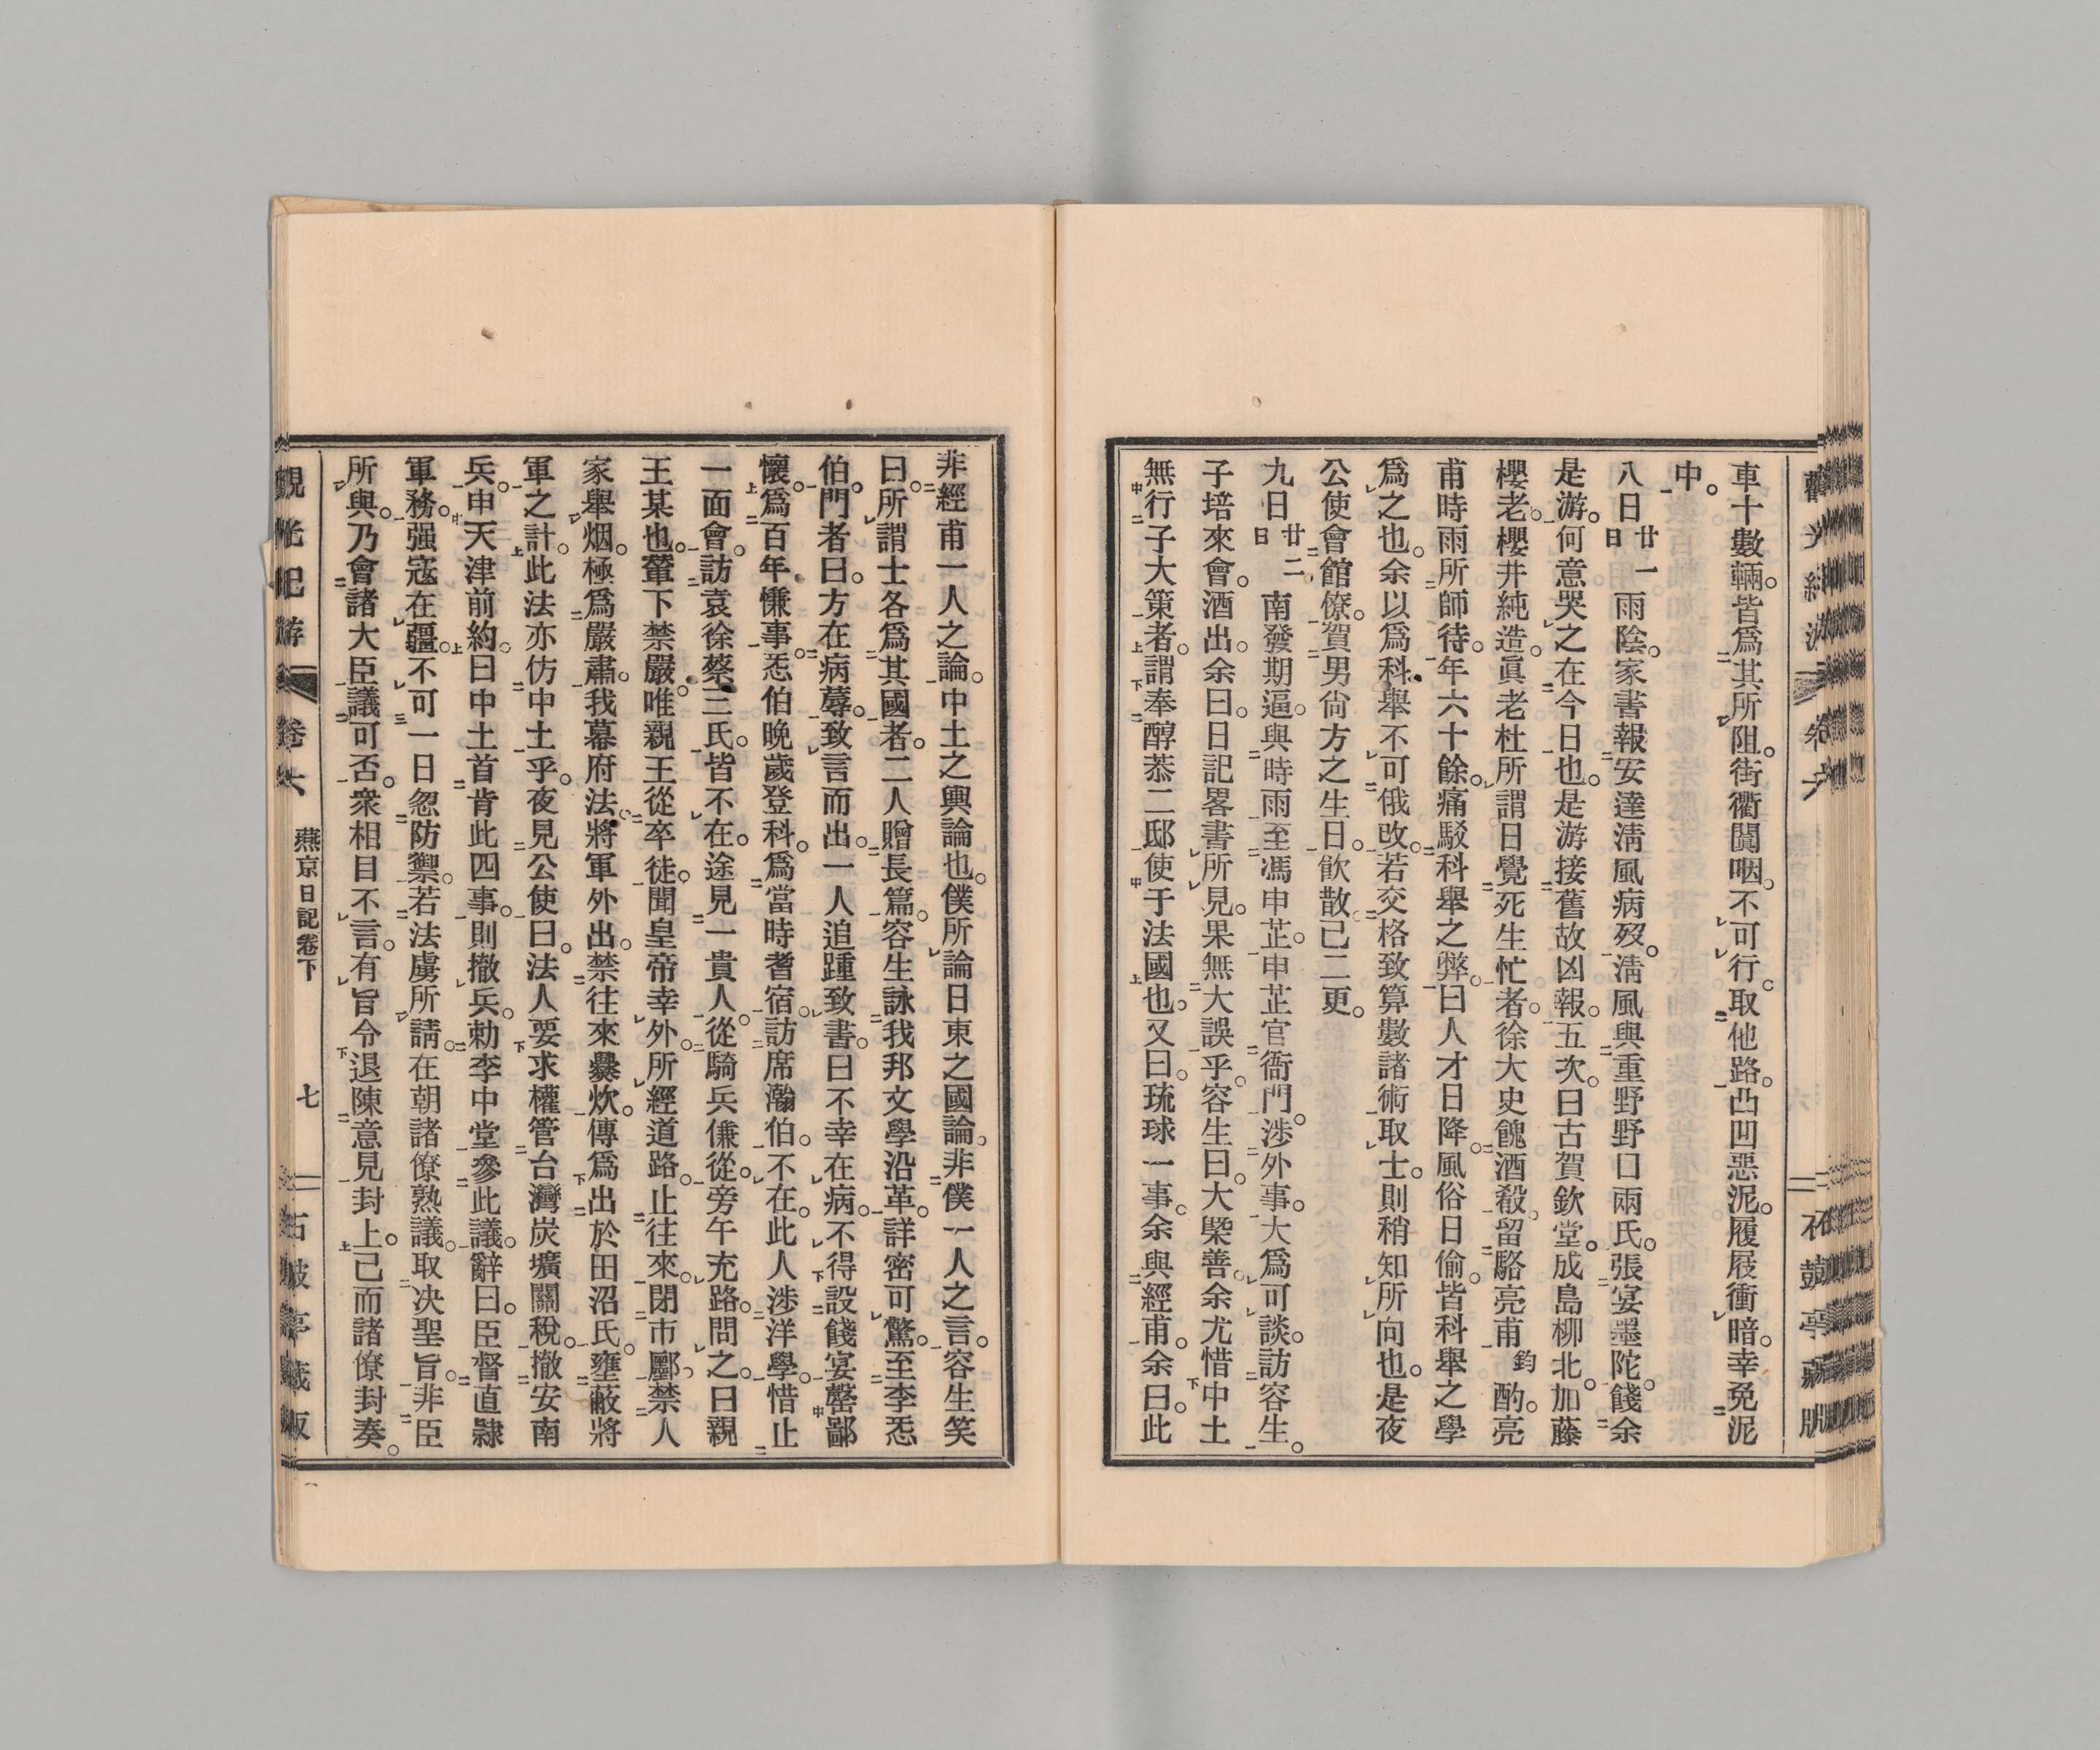 車十數輛。皆爲其所阻。街衢闐咽。不可行。取他路。凸凹惡泥。履屐衝暗。幸免泥
中。
八日廿一日雨陰。家書報安達淸風病歿。淸風與重野野口兩氏。張宴墨陀。餞余
是游。何意哭之在今日也。是游接舊故凶報。五次。曰古賀欽堂。成島柳北。加藤
櫻老。櫻井純造。眞老杜所謂日覺死生忙者。徐大史餽酒殽。留駱亮甫鈞酌。亮
甫時雨所師待。年六十餘。痛駁科舉之弊。曰人才日降。風俗日偷。皆科舉之學
爲之也。余以爲科舉不可俄改。若交格致算數諸術取士。則稍知所向也。是夜
公使會館僚。賀男尙方之生日。飮散已二更。
九日廿二日南發期逼。與時雨至馮申芷。申芷官衙門。涉外事。大爲可談。訪容生。
子培來會。酒出。余曰。日記畧書所見。果無大誤乎。容生曰。大槩善。余尤惜中土
無行子大策者。謂奉醇恭二邸使于法國也。又曰。琉球一事。余與經甫。余曰。此
非經甫一人之論。中土之輿論也。僕所論日東之國論。非僕一人之言。容生笑
曰。所謂士各爲其國者。二人贈長篇。容生詠我邦文學沿革。詳密可驚。至李悉
伯。門者曰。方在病蓐。致言而出。一人追踵致書。曰不幸在病。不得設餞宴罄鄙
懷。爲百年慊事。悉伯晚歲登科。爲當時耆宿。訪席瀚伯。不在。此人涉洋學。惜止
一面會。訪袁徐蔡三氏。皆不在。途見一貴人。從騎兵傔從。旁午充路。問之。曰親
王某也。輦下禁嚴。唯親王從卒徒。聞皇帝幸外。所經道路。止往來。閉市廛。禁人
家舉烟。極爲嚴肅。我幕府法。將軍外出。禁往來爨炊。傳爲出於田沼氏。壅蔽將
軍之計。此法亦仿中土乎。夜見公使。曰。法人要求權管台灣炭壙關稅。撤安南
兵。申天津前約。曰中土首肯此四事。則撤兵。勅李中堂參此議。辭曰。臣督直隸
軍務。强寇在疆。不可一日忽防禦。若法虜所請。在朝諸僚熟議。取决聖旨。非臣
所與。乃會諸大臣議可否。衆相目不言。有旨令退陳意見封上。已而諸僚封奏。
觀光紀游 卷六 燕京日記卷下 七 石鼓亭藏版